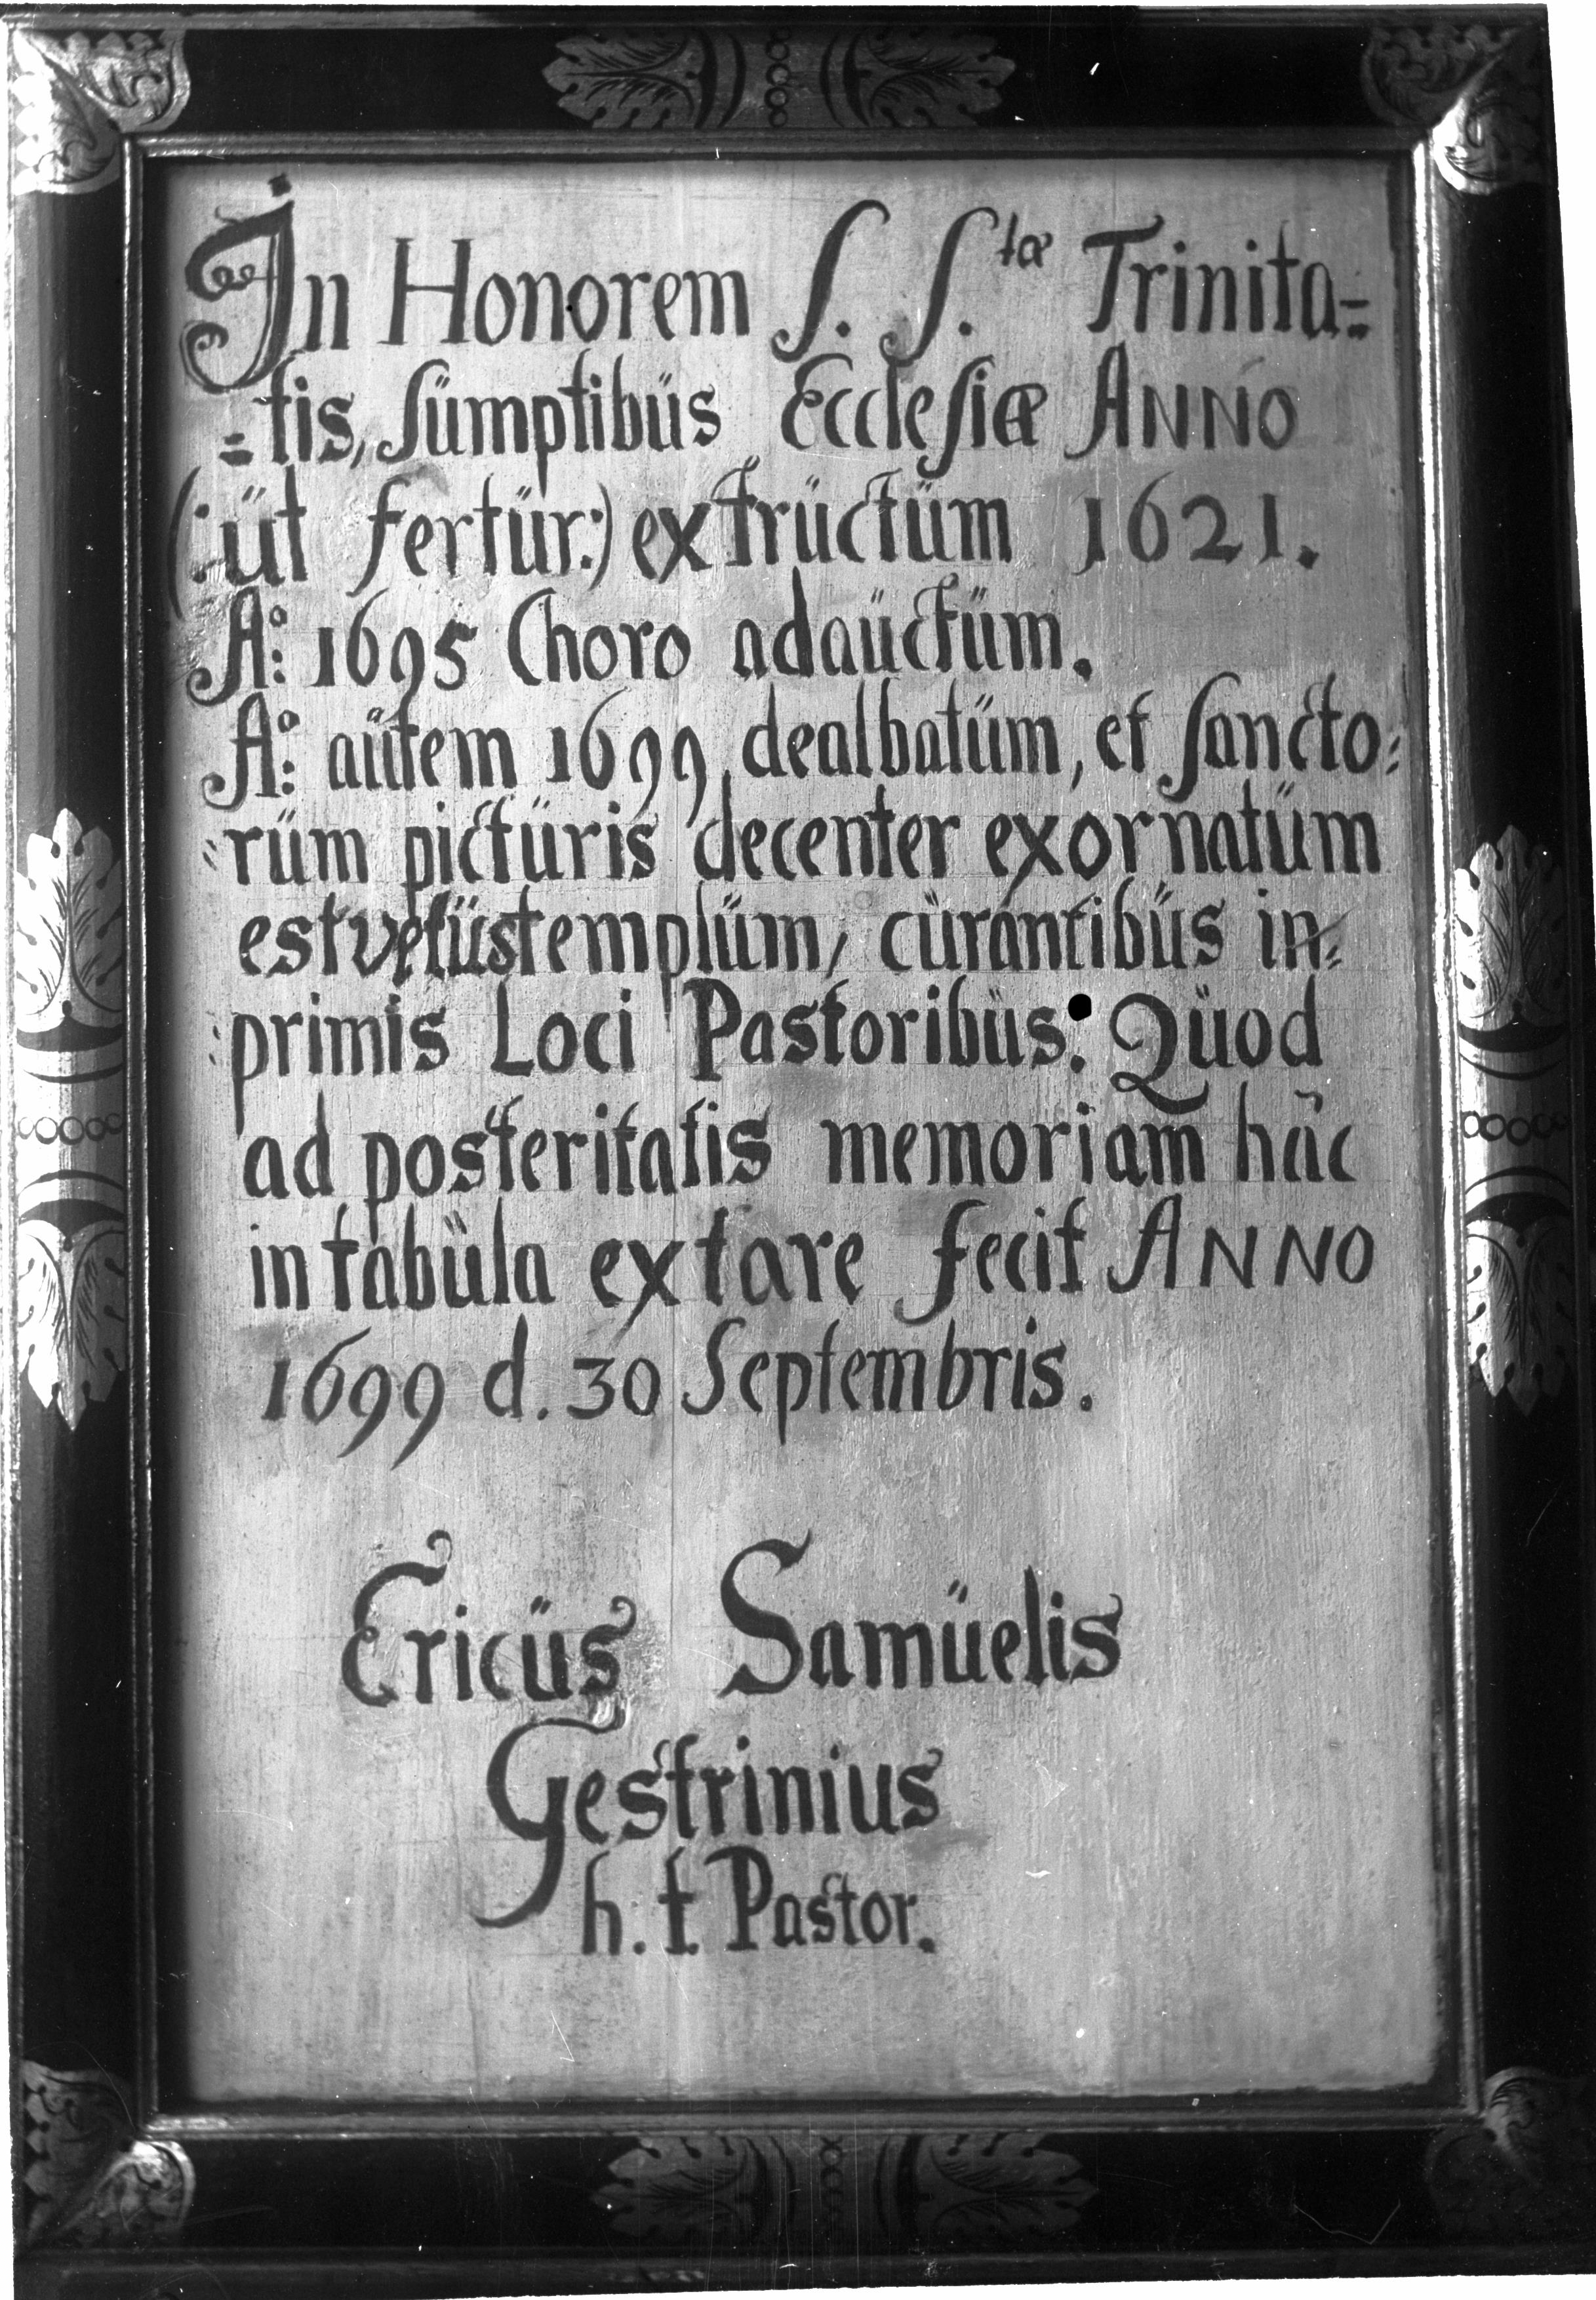 In Honorem S. S.tæ Trinita=
=tis, sümptibüs Ecclesiæ ANNO
(:üt fertür:) extrüctüm 1621.
A:o 1695 Choro adaüctüm.
A:o aütem 1699, dealbatüm, et sancto=
=rüm pictüris decenter exornatüm
est vetüs templüm, cürantibüs in=
=primis Loci Pastoribüs: Qüod
ad posteritatis memoriam hâc
in tabüla extare fecit ANNO
1699 d. 30 Septembris.
Ericüs Samüelis
Gestrinius
h. t. Pastor.